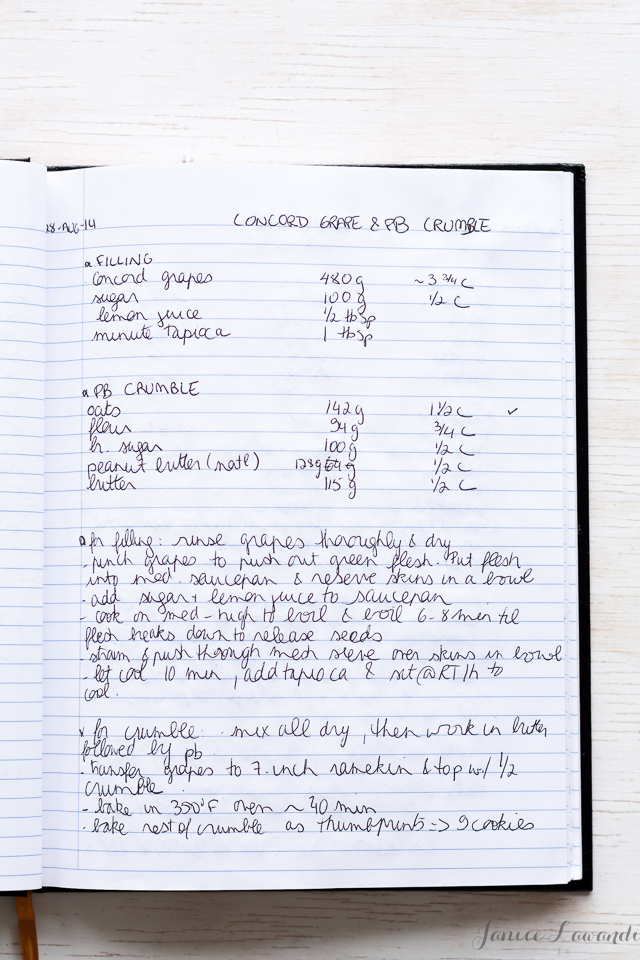 28-AUG-14 CONCORD GRAPE & PB CRUMBLE
FILLING
concord grapes 480g ~3 3/4 C
sugar 100g 1/2 C
lemon juice 1/2 tbsp
minute Tapioca 1 tbsp
PB CRUMBLE
oats 142g 1 1/2 C ✓
flour 94g 3/4 C
b. sugar 100g 1/2 C
peanut butter (natl) 128g 64g 1/2 C
butter 115g 1/2 C
for filling: rinse grapes thoroughly & dry
- pinch grapes to push out green flesh. Put flesh
into med. saucepan & reserve skins in a bowl
- add sugar + lemon juice to saucepan
- cook on med-high to boil & boil 6-8 min til
flesh breaks down to release seeds
- strain & push through mesh sieve over skins in bowl
- let cool 10 min, add tapioca & set @ RT 1h to
cool.
for crumble: mix all dry, then work in butter
followed by pb
- transfer grapes to 7-inch ramekin & top w/ 1/2
crumble.
- bake in 350°F oven ~40 min
- bake rest of crumble as thumbprints => 9 cookies
Janice Lawandi